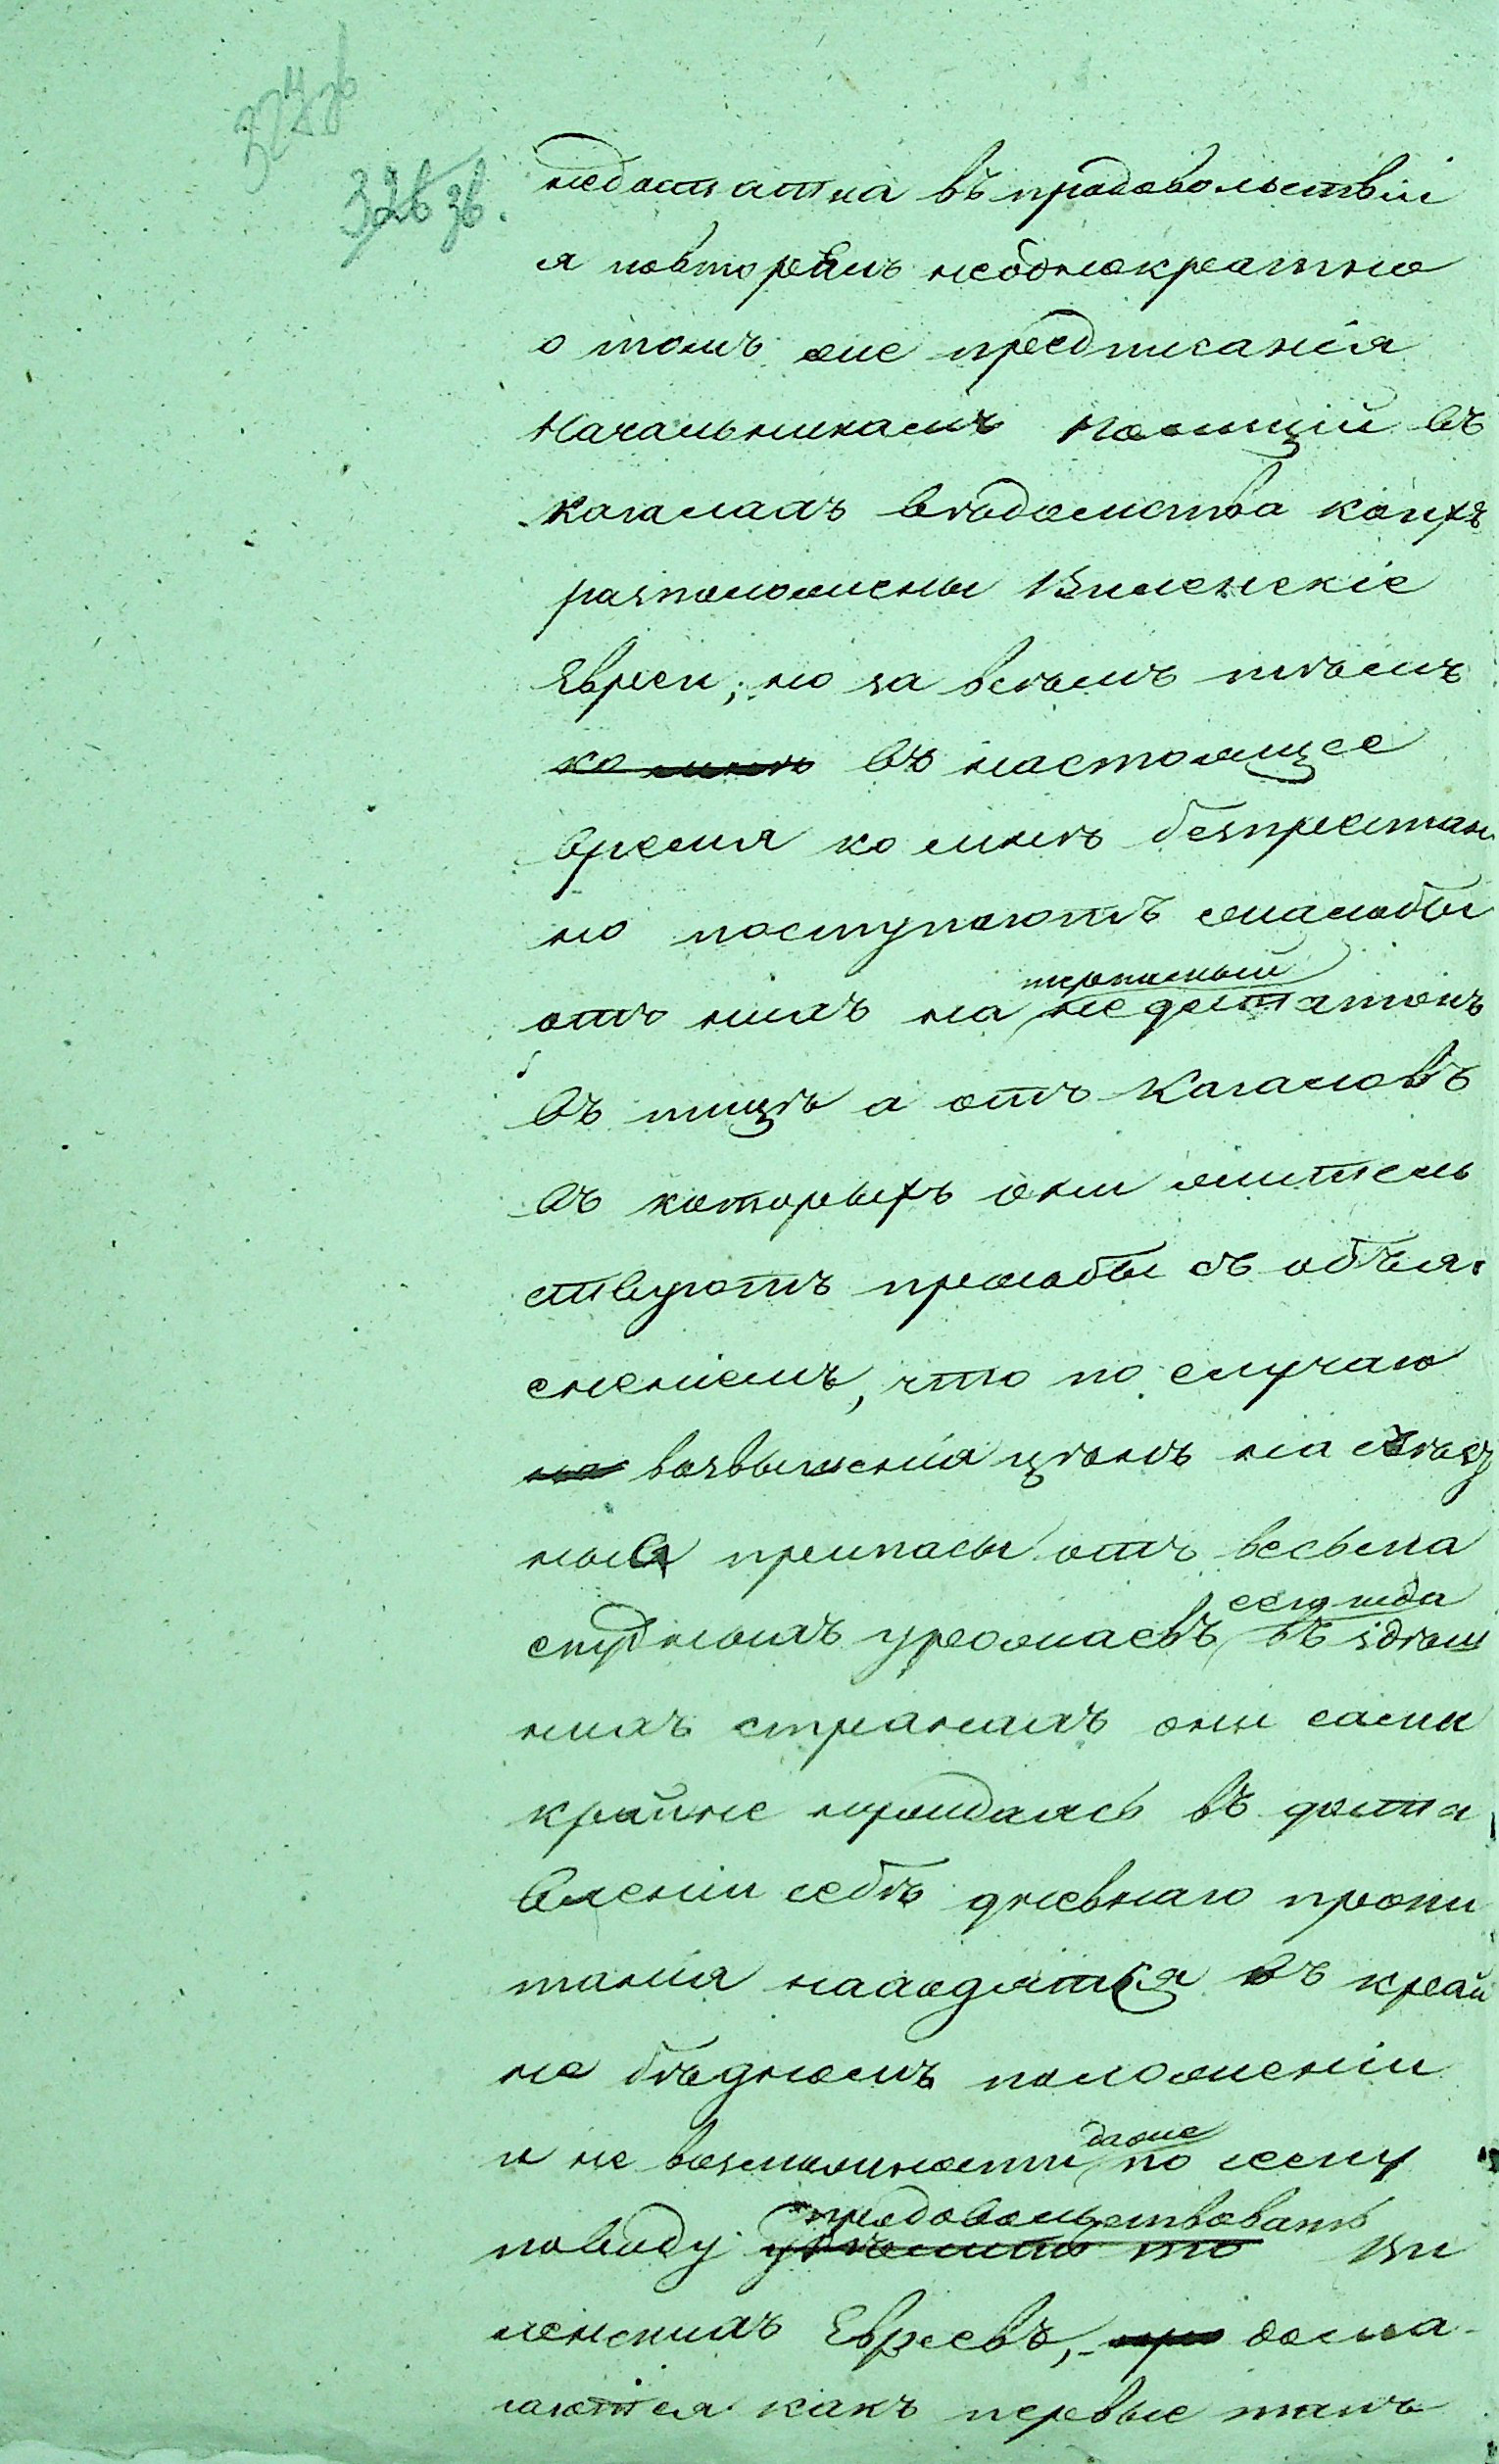 324 зв
326 зв.
недостатка въ продовольствіи
я повторялъ неоднократно
о томъ же предписанія
Начальникамъ Полицій въ
кагалахъ вѣдомства коихъ
разположены Виленскіе
Евреи; но за всѣмъ тѣмъ
ко мнѣ въ настоящее
время ко мнѣ безпрестан
но поступаютъ жалобы
терпимый
отъ нихъ на недостатокъ
въ пищѣ а отъ Кагаловъ
въ которыхъ они житель
ствуютъ прозьбы съ объя
сненіемъ, что по случаю
на возвышенія цѣнъ на съѣз
ныя припасы отъ весьма
сего года
скудныхъ урожаевъ въ здѣш
нихъ странахъ они сами
крайне нуждаясь въ доста
вленіи себѣ дневнаго пропи
танія находятся въ край
не бѣдномъ положеніи
даже
и не возможности по сему
продовольствовать
поводу то Ви
ленскихъ Евреевъ, дома
гаются какъ первые такъ